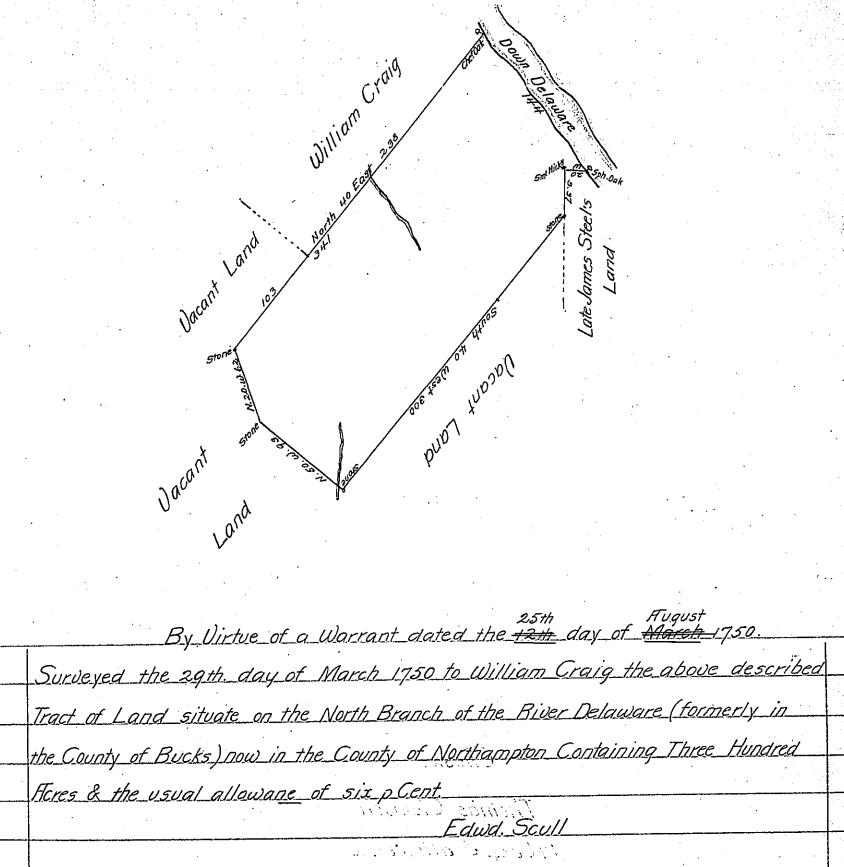 Down Delaware
144
Ches Oak
William Craig
238
North 40 East
341
Vacant Land
103
Stone
N.20.W.62
Stone
N. 50. W. 93
Stone
Vacant
Land
South 40 West 300
Vacant Land
Stone
S. 37
E
20
Sph. Oak
Late James Steels
Land
25th August
By Virtue of a Warrant dated the 12th day of March 1750.
Surveyed the 29th. day of March 1750 to William Craig the above described
Tract of Land situate on the North Branch of the River Delaware (formerly in
the County of Bucks) now in the County of Northampton Containing Three Hundred
Acres & the usual allowane of six p Cent
Edwd. Scull